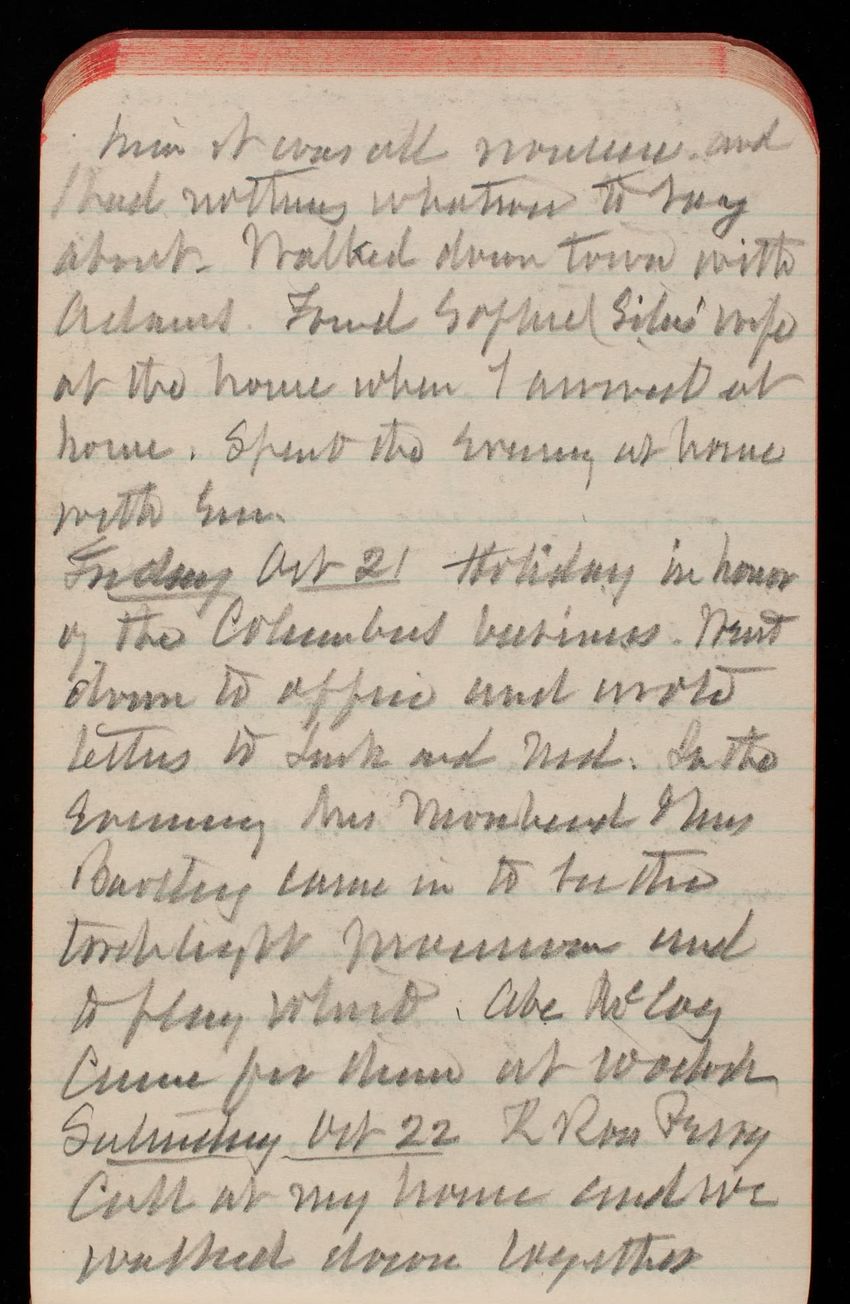 him it was all nonsense and
I had nothing whatever to say
about. Walked down town with
Adams. Found Sophie (Silas' wife
at the house when I arrived at
home. Spent the Evening at home
with Em.
Friday Oct 21 Holiday in honor
of the Columbus business. Went
down to office and wrote
letters to Lusk and Ned. In the
Evening Mrs & Mrs
came in to see the
torchlight procession and
to play whist. Abe McCoy
Came for them at 10 oclock
Saturday Oct 22 R Ross Perry
Call at my house and we
walked down together